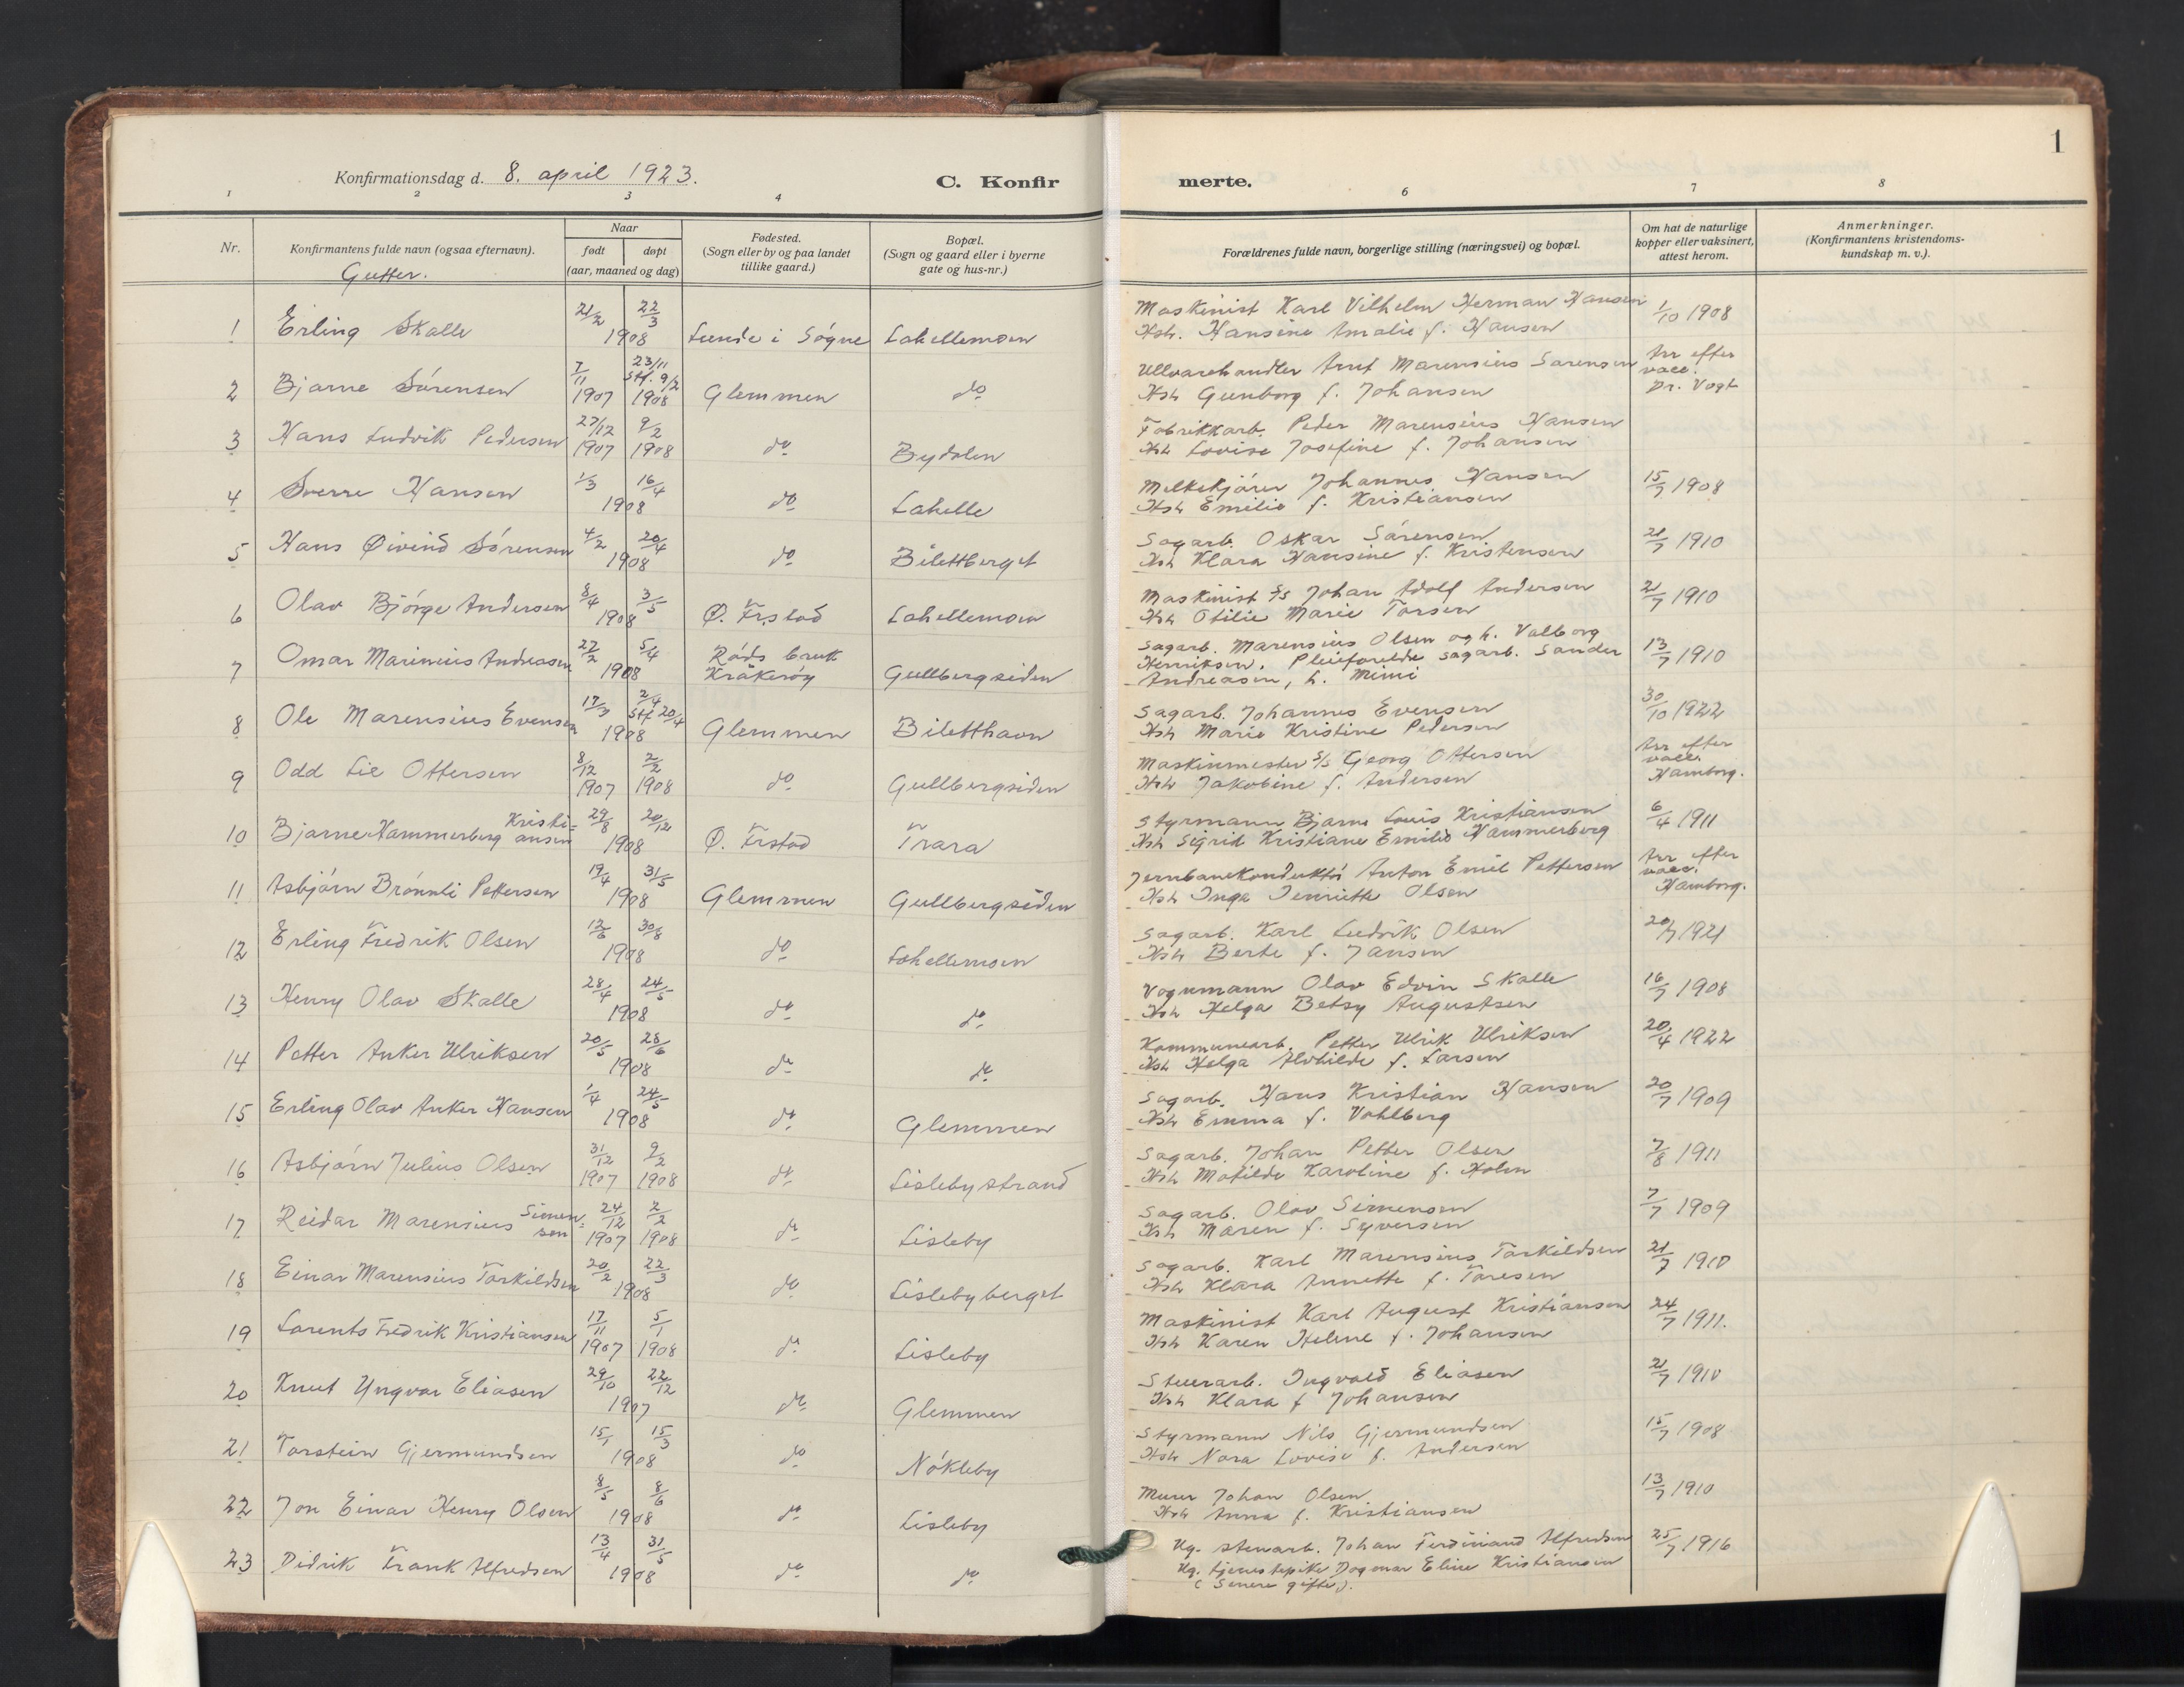 1
Konfirmationsdag d. 8. april 1923.
C. Konfirmerte.
1 2 3 4 6 7 8
Nr.
Konfirmantens fulde navn (ogsaa efternavn).
Gutter.
Naar
født døpt
(aar, maaned og dag)
Fødested.
(Sogn eller by og paa landet
tillike gaard.)
Bopæl.
(Sogn og gaard eller i byerne
gate og hus-nr.)
Forældrenes fulde navn, borgerlige stilling (næringsvei) og bopæl.
Om hat de naturlige
kopper eller vaksinert,
attest herom.
Anmerkninger.
(Konfirmantens kristendoms-
kundskap m. v.).
1 Erling Skalle 21/2 22/3 1908 Lunde i Søgne Lahellemoen
Maskinist Karl Vilhelm Herman Hansen 1/10 1908
Hstr. Hansine Amalie f. Hansen
2 Bjarne Sørensen 7/11 1907 23/11 Stf. 9/2 1908 Glemmen do
Ullvarehandler Arnt Marensius Sørensen Arr efter
vacc.
Hstr Gunborg f. Johansen Dr. Vogt
3 Hans Ludvik Pedersen 27/12 1907 9/2 1908 do Bydalen
Fabrikkarb. Peder Marensius Hansen
Hstr Lovise Josefine f. Johansen
4 Sverre Hansen 1/3 16/4 1908 do Lahelle
Melkekjører Johannes Hansen 15/7 1908
Hstr Emilie f. Kristiansen
5 Hans Øivind Sørensen 4/2 20/4 1908 do Bilettberget
Sagarb. Oskar Sørensen 21/7 1910
Hstr Klara Hansine f. Kristensen
6 Olav Bjørge Andersen 8/4 3/5 1908 Ø. Fr.stad Lahellemoen
Maskinist S/S Johan Adolf Andersen 21/7 1910
Hstr Otilie Marie Torsen
7 Omar Marinius Andreasen 22/2 5/4 1908 Råds bruk
Kråkerøy Gullbergsiden
Sagarb. Marensius Olsen og h. Valborg
Henriksen. Pleieforeldre sagarb. Sander 13/7 1910
Andreasen, h. Mimi
8 Ole Marensius Evensen 17/3 2/4 Stf 20/4 1908 Glemmen Biletthavn
Sagarb. Johannes Evensen 30/10 1922
Hstr Marie Kristine Pedersen
9 Odd Lie Ottersen 8/12 1907 2/2 1908 do Gullbergsiden
Maskinmester S/S Georg Ottersen Arr efter
vacc.
Hstr Jakobine f. Andersen Hamborg.
10 Bjarne Hammerberg Kristi=
ansen 29/8 20/12 1908 Ø. Frstad Trara
Styrmann Bjarne Louis Kristiansen 6/4 1911
Hstr Sigrid Kristiane Emilie Hammerberg
11 Asbjørn Brønnli Pettersen 19/4 31/5 1908 Glemmen Gullbergsiden
Jernbanekonduktør Anton Emil Pettersen Arr efter
vacc.
Hstr Inga Henriette Olsen Hamborg.
12 Erling Fredrik Olsen 12/6 30/8 1908 do Lahellemoen
Sagarb. Karl Ludvik Olsen 20/7 1921
Hstr Berte f. Jansen
13 Henry Olav Skalle 28/4 24/5 1908 do do
Vognmann Olav Edvin Skalle 16/7 1908
Hstr Helga Betsy Augustsen
14 Petter Anker Ulriksen 20/5 28/6 1908 do do
Kommunearb. Petter Ulrik Ulriksen 20/4 1922
Hstr Helga Alvhilde f. Larsen
15 Erling Olav Anker Hansen 1/4 24/5 1908 do Glemmen
Sagarb. Hans Kristian Hansen 20/7 1909
Hstr Emma f. Vahlberg
16 Asbjørn Julius Olsen 31/12 1907 9/2 1908 do Lislebystrand
Sagarb. Johan Petter Olsen 7/8 1911
Hstr Matilde Karoline f. Holm
17 Reidar Marensius Simen=
sen 24/12 1907 2/2 1908 do Lisleby
Sagarb. Olav Simensen 7/7 1909
Hstr Maren f. Syversen
18 Einar Marensius Torkildsen 20/2 22/3 1908 do Lislebyberget
Sagarb. Karl Marensius Torkildsen 21/7 1910
Hstr Klara Annette f. Toresen
19 Lorents Fredrik Kristiansen 17/11 1907 5/1 1908 do Lisleby
Maskinist Karl August Kristiansen 24/7 1911.
Hstr Karen Helene f. Johansen
20 Knut Yngvar Eliasen 29/10 22/12 1907 do Glemmen
Stuerarb. Ingvald Eliasen 21/7 1910
Hstr Klara f Johansen
21 Torstein Gjermundsen 15/1 15/3 1908 do Nøkleby
Styrmann Nils Gjermundsen 15/7 1908
Hstr Nora Lovise f. Andersen
22 Jon Einar Henry Olsen 8/5 8/6 1908 do Lisleby
Murer Johan Olsen 13/7 1910
Hstr Anna f. Kristiansen
23 Didrik Frank Alfredsen 13/4 31/5 1908 do do
Ug. stenarb. Johan Ferdinand Alfredsen 25/7 1916
Ug. tjenestepike Dagmar Eline Kristiansen
(Senere gifte).